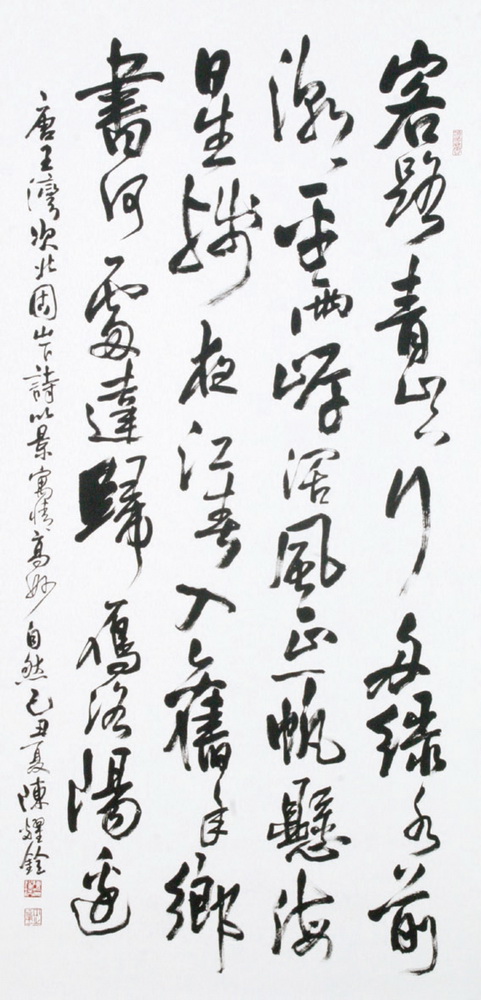 客路青山下行舟綠水前
潮平兩岸闊風正一帆懸海
日生殘夜江春入舊年鄉
書何處達歸鴈洛陽邊
唐王灣次北固山下詩以景寓情高妙自然己丑夏陳燿銓